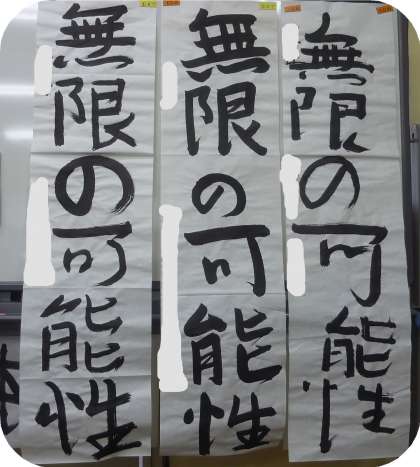 無限の可能性
無限の可能性
無限の可能性